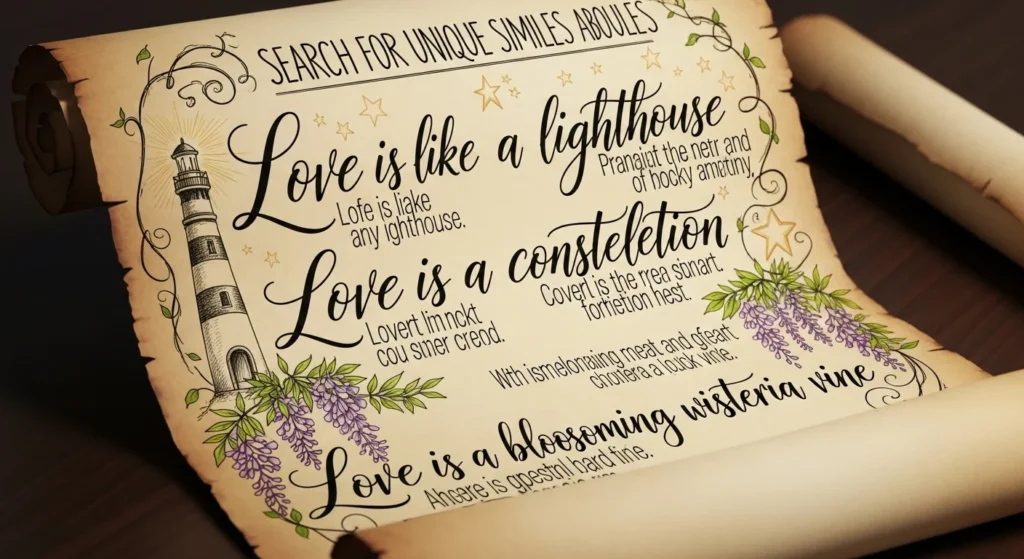 SEARCH FOR UNIQUE SIMILES ABOULES
Love is like a lighthouse
Lofe is liake
any ighthouse.
Pranaiut the netr and
of hocky amətiny,
Love is a consteletion
Lovert limnckt
cou smer creod.
Coverl is the rrea sbinart.
forfietion hest.
Wth ismelonaining meat and gfeart
chonfera a louck vinle.
Love is a bloosoming wisteria vine
Ahcere is gpestnl bard fine.